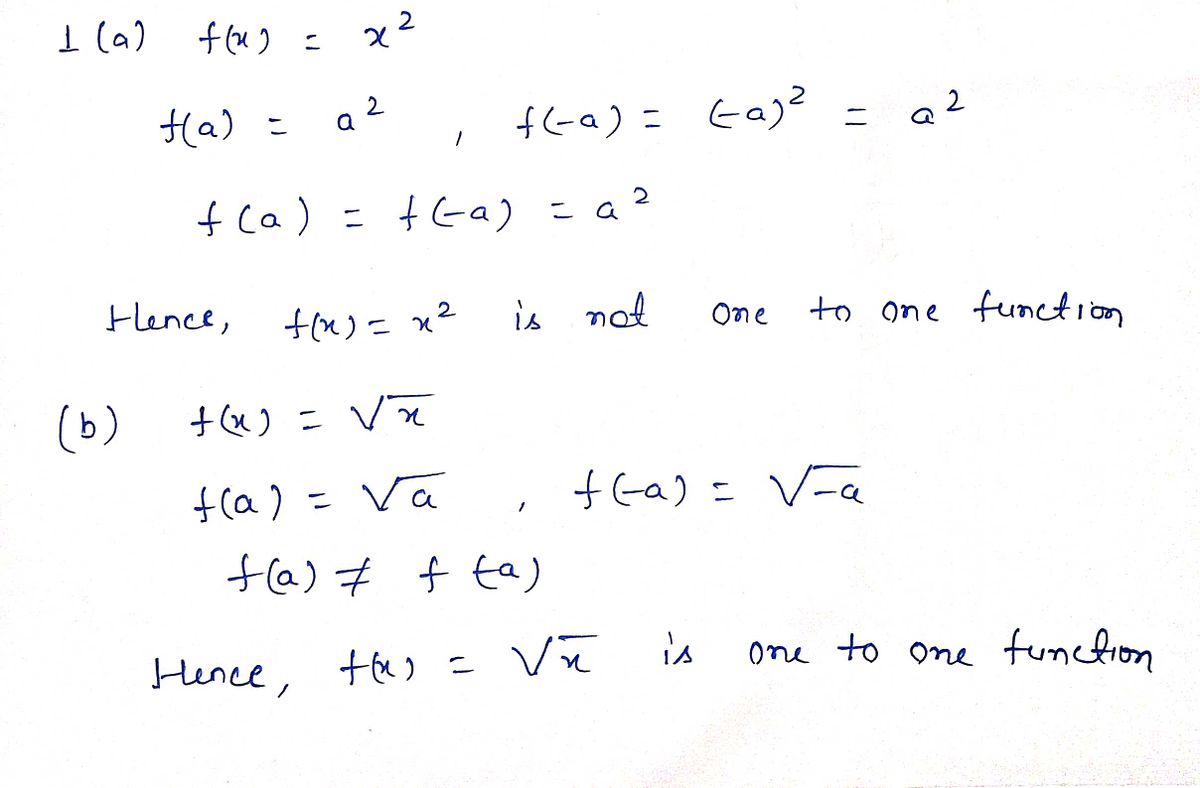 1 (a) f(x) = x²
f(a) = a² , f(-a) = (-a)² = a²
f(a) = f(-a) = a²
Hence, f(x) = x² is not one to one function
(b) f(x) = √x
f(a) = √a , f(-a) = √-a
f(a) ≠ f(-a)
Hence, f(x) = √x is one to one function